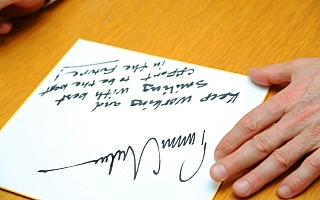 Keep working and
smiling with best
effort to be the best
in the future!